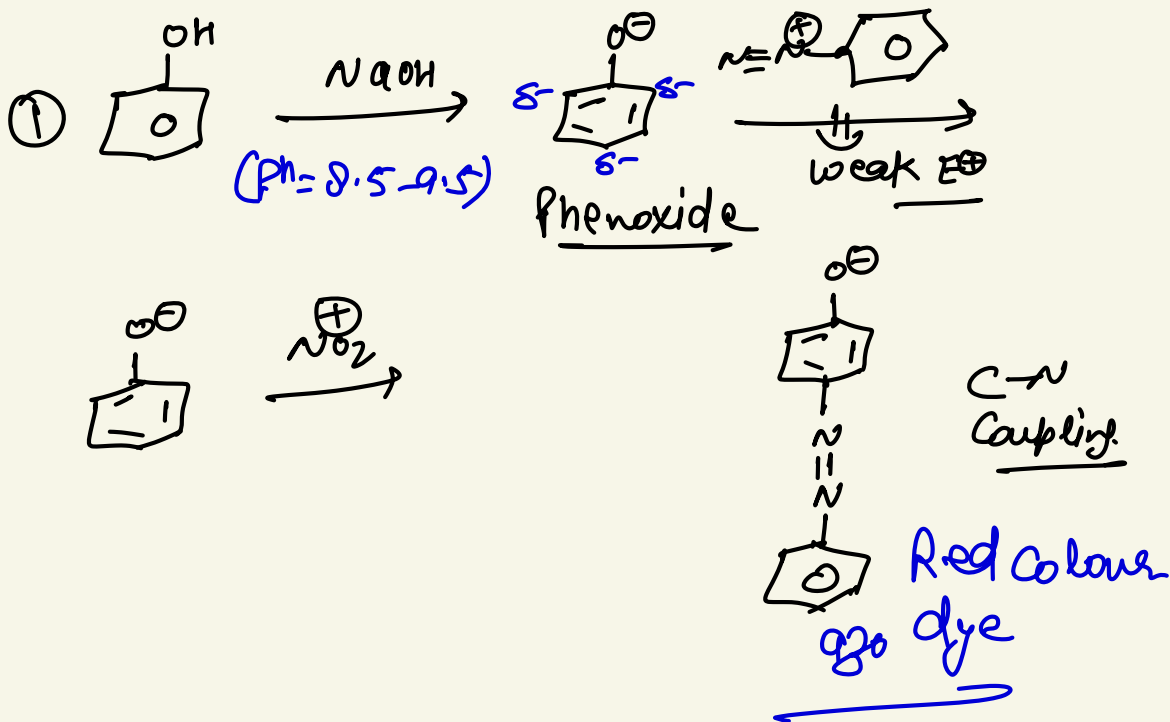 ① OH
NaOH
(Ph= 8.5-9.5)
O⊖
δ- δ-
δ-
Phenoxide
N≡N⊕
weak E⊕
O⊖
⊕NO2
O⊖
N
N
C-N
Coupling.
Red Colour
azo dye